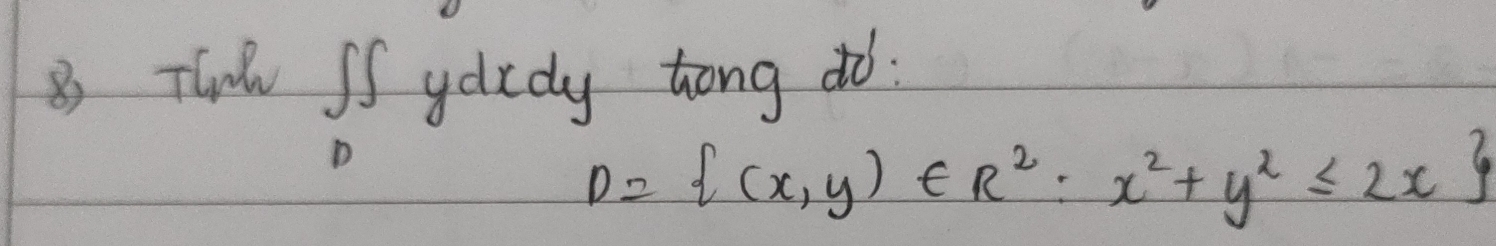 8) Tính ∬ ydxdy trong đó:
D
D = { (x, y) ∈ R² : x² + y² ≤ 2x }